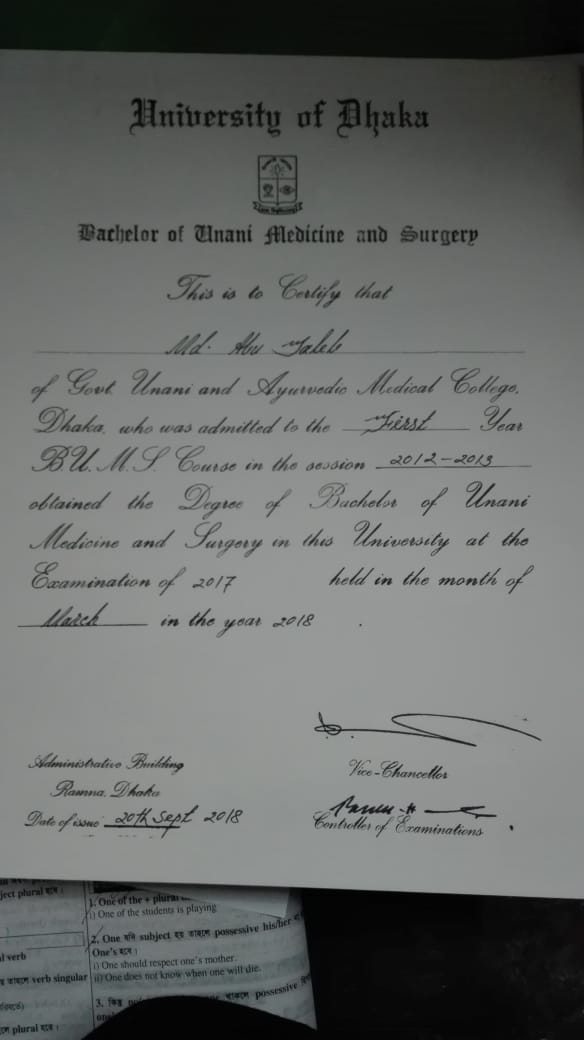 University of Dhaka
Bachelor of Unani Medicine and Surgery
This is to Certify that
Md. Abu Taleb
of Govt. Unani and Ayurvedic Medical College,
Dhaka, who was admitted to the First Year
B.U.M.S. Course in the session 2012-2013
obtained the Degree of Bachelor of Unani
Medicine and Surgery in this University at the
Examination of 2017 held in the month of
March in the year 2018 .
Vice-Chancellor
Administrative Building
Ramna, Dhaka
Date of issue 20th Sept 2018
Controller of Examinations
ject plural হবে।
1. One of the + plural
i) One of the students is playing
2. One যদি subject হয় তাহলে possessive his/her
One's হবে।
i) One should respect one's mother.
ii) One does not know when one will die.
l verb
তাহলে verb singular
3. কিন্তু
থাকলে possessive
plural হবে।